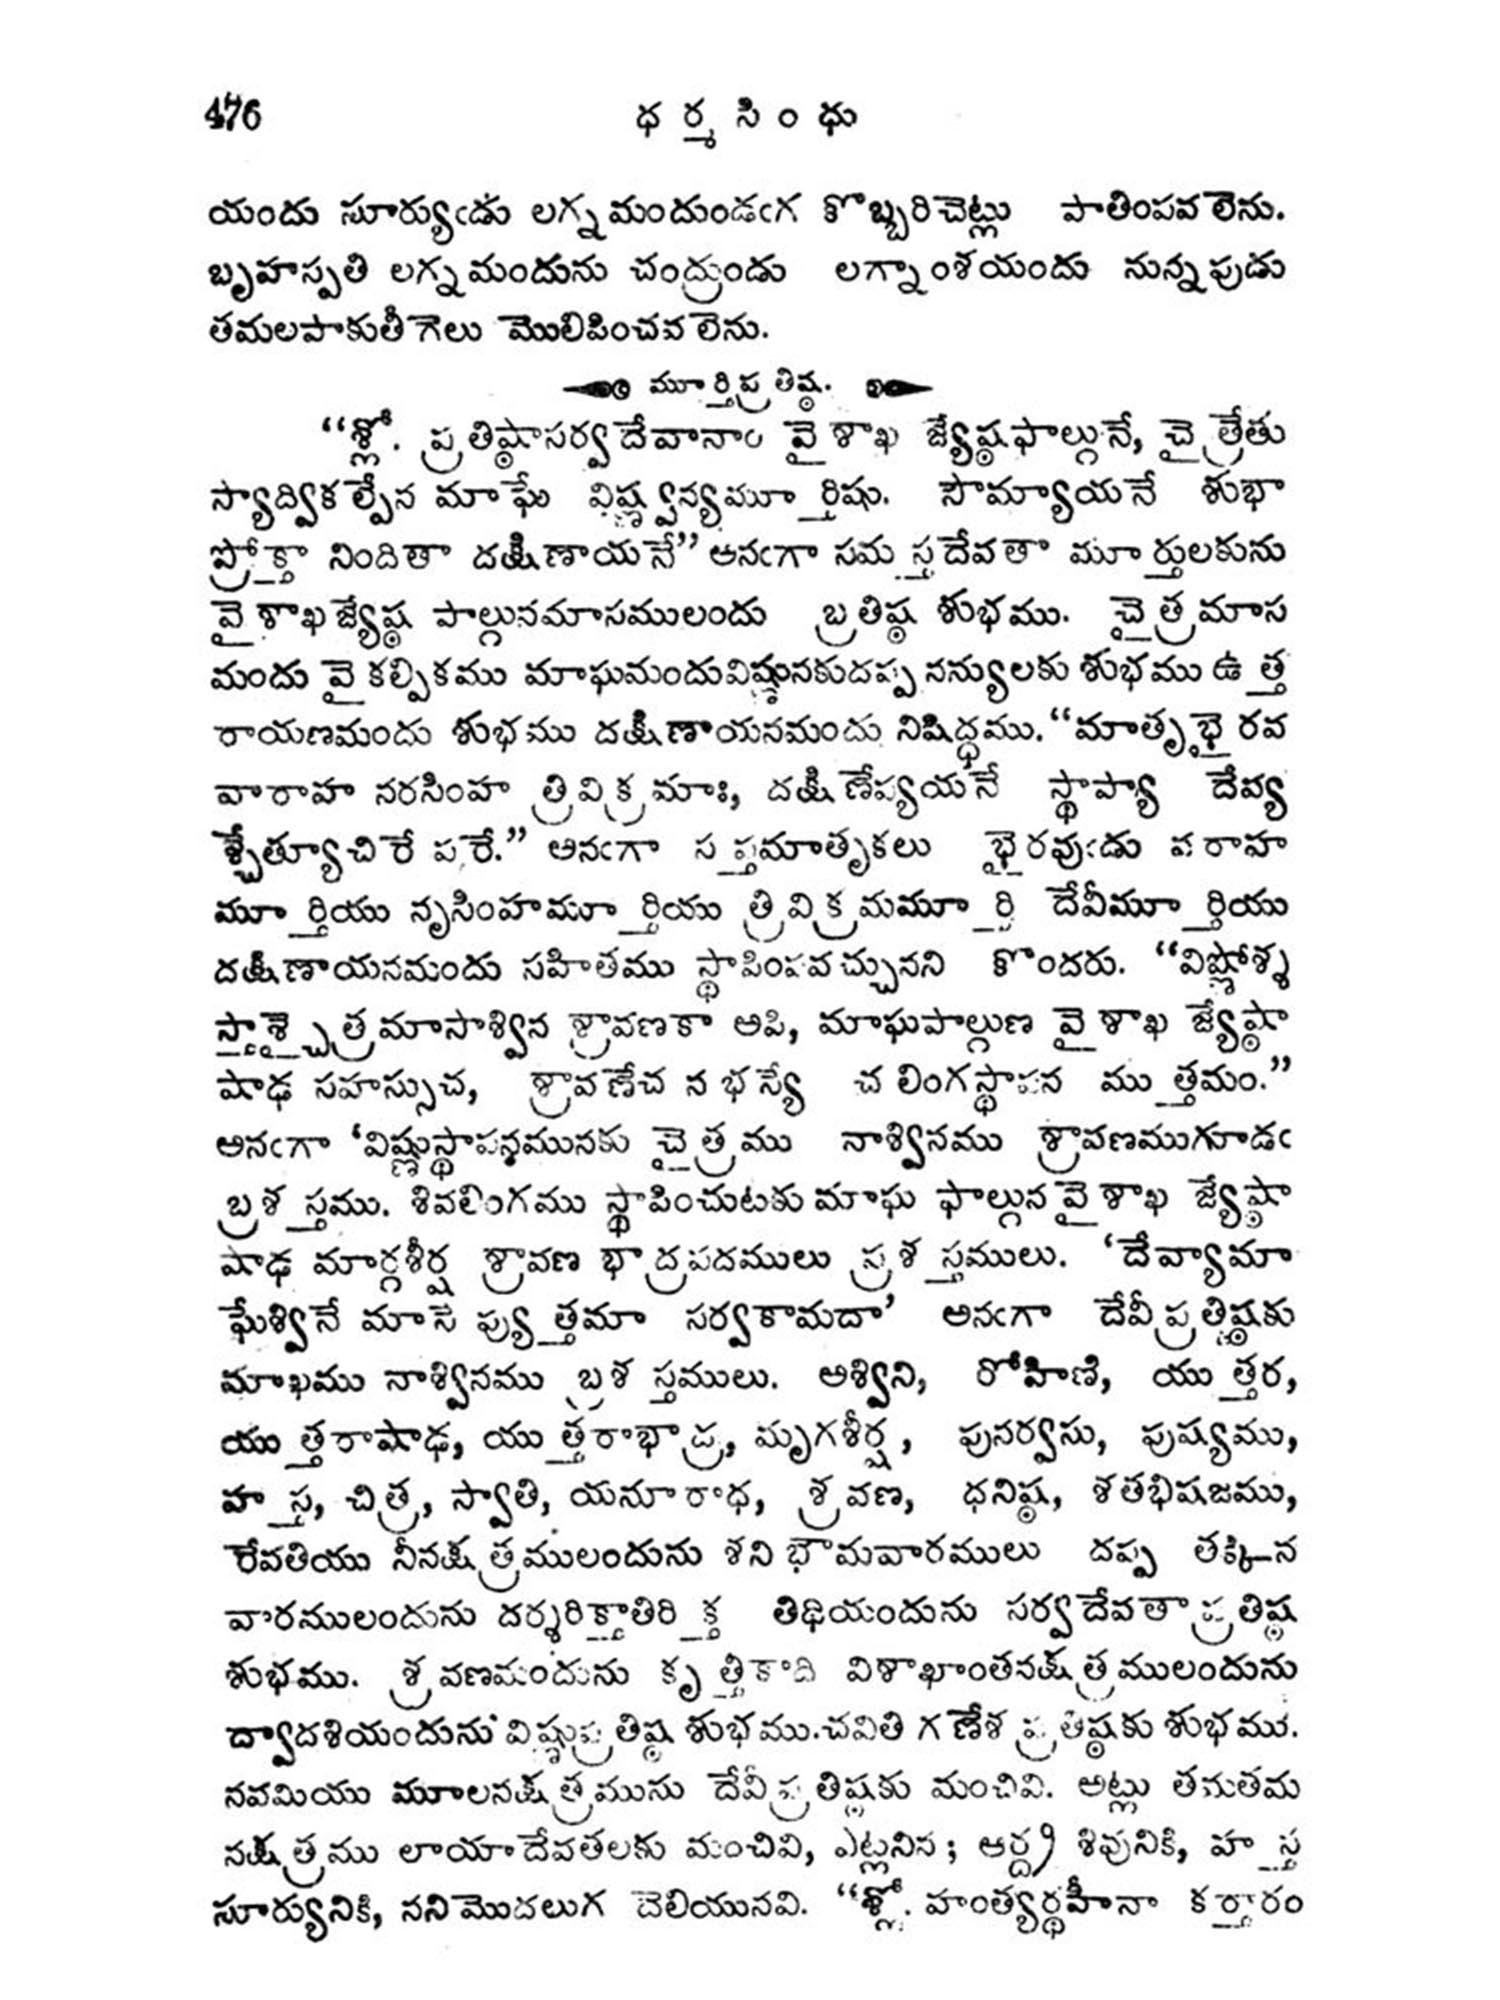 476
ధర్మసింధు
యందు సూర్యుఁడు లగ్నమందుండఁగ కొబ్బరిచెట్లు పాతింపవలెను.
బృహస్పతి లగ్నమందును చంద్రుండు లగ్నాంశయందు నున్నపుడు
తమలపాకుతీగెలు మొలిపించవలెను.
మూర్తిప్రతిష్ఠ.
“శ్లో. ప్రతిష్ఠాసర్వదేవానాం వైశాఖ జ్యేష్ఠఫాల్గునే, చైత్రేతు
స్యాద్వికల్పేన మాఘే విష్ణ్వన్యమూర్తిషు. సౌమ్యాయనే శుభా
ప్రోక్తా నిందితా దక్షిణాయనే” అనఁగా సమస్తదేవతా మూర్తులకును
వైశాఖజ్యేష్ఠ పాల్గునమాసములందు బ్రతిష్ఠ శుభము. చైత్రమాస
మందు వైకల్పికము మాఘనుందువిష్ణునకుదప్ప నన్యులకు శుభము ఉత్త
రాయణమందు శుభము దక్షిణాయనమందు నిషిద్ధము. “మాతృభైరవ
వారాహ నరసింహ త్రివిక్రమాః, దక్షిణేప్యయనే స్థాప్యా దేవ్య
శ్చేత్యూచిరే పరే.” అనఁగా సప్తమాతృకలు భైరవుఁడు వరాహ
మూర్తియు నృసింహమూర్తియు త్రివిక్రమమూర్తి దేవీమూర్తియు
దక్షిణాయనమందు సహితము స్థాపింపవచ్చునని కొందరు. “విష్ణోశ్శ
స్తాశ్చైత్రమాసాశ్విన శ్రావణకా అపి, మాఘపాల్గుణ వైశాఖ జ్యేష్ఠా
షాఢ సహస్సుచ, శ్రావణేచ నభస్యే చ లింగస్థాపన ముత్తమం.”
అనఁగా ‘విష్ణుస్థాపనమునకు చైత్రము నాశ్వినము శ్రావణముగూడఁ
బ్రశస్తము. శివలింగము స్థాపించుటకు మాఘ ఫాల్గున వైశాఖ జ్యేష్ఠా
షాఢ మార్గశీర్ష శ్రావణ భాద్రపదములు ప్రశస్తములు. ‘దేవ్యామా
ఘేశ్వినే మాసే ప్యుత్తమా సర్వకామదా’ అనఁగా దేవీప్రతిష్ఠకు
మాఖము నాశ్వినము బ్రశస్తములు. అశ్విని, రోహిణి, యుత్తర,
యుత్తరాషాఢ, యుత్తరాభాద్ర, మృగశీర్ష, పునర్వసు, పుష్యము,
హస్త, చిత్ర, స్వాతి, యనూరాధ, శ్రవణ, ధనిష్ఠ, శతభిషజము,
రేవతియు నీనక్షత్రములందును శని భౌమవారములు దప్ప తక్కిన
వారములందును దర్శరిక్తాతిరిక్త తిథియందును సర్వదేవతాప్రతిష్ఠ
శుభము. శ్రవణమందును కృత్తికాది విశాఖాంతనక్షత్రములందును
ద్వాదశియందును విష్ణుప్రతిష్ఠ శుభము.చవితి గణేశ ప్రతిష్ఠకు శుభము.
నవమియు మూలనక్షత్రమును దేవీప్రతిష్ఠకు మంచివి. అట్లు తమతమ
నక్షత్రము లాయాదేవతలకు మంచివి, ఎట్లనిన; ఆర్ద్ర శివునికి, హస్త
సూర్యునికి, నని మొదలుగ దెలియునవి. “శ్లో. హంత్యర్థహీనా కర్తారం